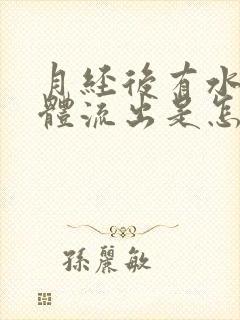 月經後有水
體流出是怎
孫麗敏